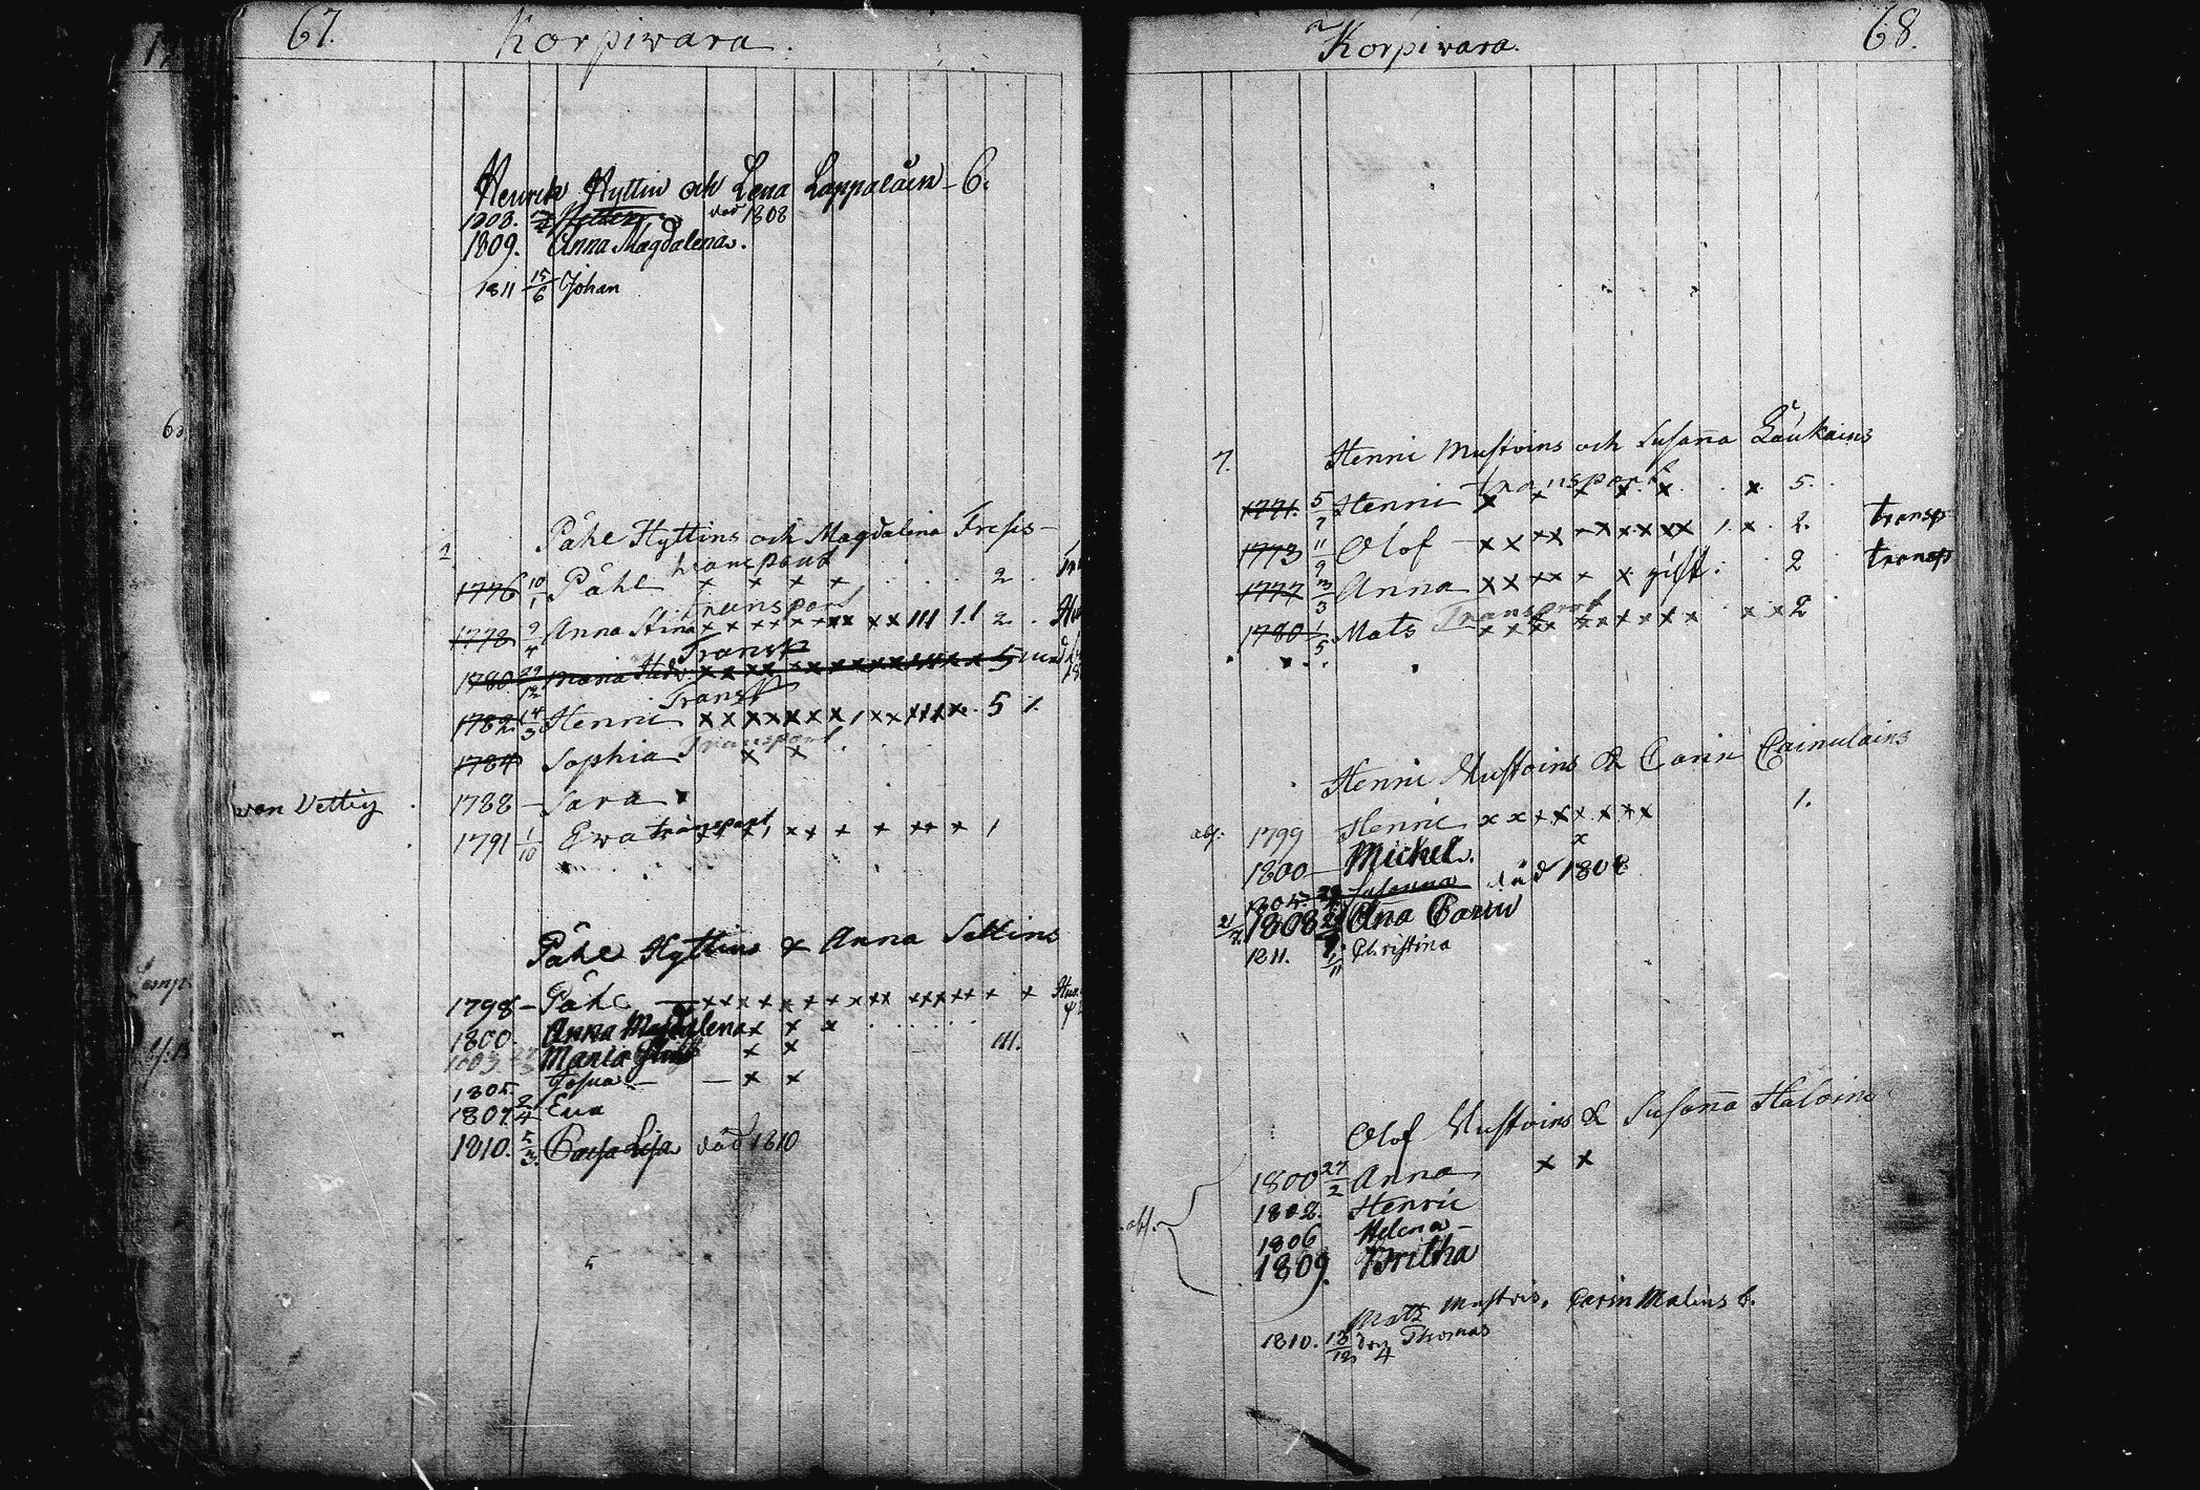 67. Korpiwara.
Henrik Hyttin och Lena Lappalain - 6.
1808. död 1808
1809. Anna Magdalena.
1811 15/6 Johan
1 Påhl Hyttins och Magdalina
1776 10/1 Påhl transport x x x x 2
1778 9/4 Anna Stina Transport 2
1780 29/12 Maria Hedv Transp 5
1782 14/3 Henric Transp 5 1.
1784 Sophia Transport x x
1788 — Sara
1791 1/10 Ewa transport 1
Påhl Hyttins & Anna Settins
1798 — Påhl
1800. Anna Magdalena x x x
1803 Maria x x III.
1805. Josua — x x
1807. 2/4 Eva
1810. 5/3. Caisa Lisa död 1810
Korpiwara. 68.
7. Henric Mustoins och Susanna Laukains
1771. 5/7 Henric transport 5.
1773 11/9 Olof 2. transp
1777 3/3 Anna gift. 2 transp
1780 1/5 Mats Transport 2
Henric Mustoins & Carin Cainulains
abs. 1799 Henric 1.
1800 — Michel. x
1805. Susanna död 1808
1808 Ana Carin
1811. 1/11 Christina
Olof Mustoins & Susanna Haloins
1800 27/2 Anna x x
1802. Henric
abs. 1806 Helena —
1809. Britha
Matts Mustois, Carin Malins 6.
1810. 13/12 Thomas